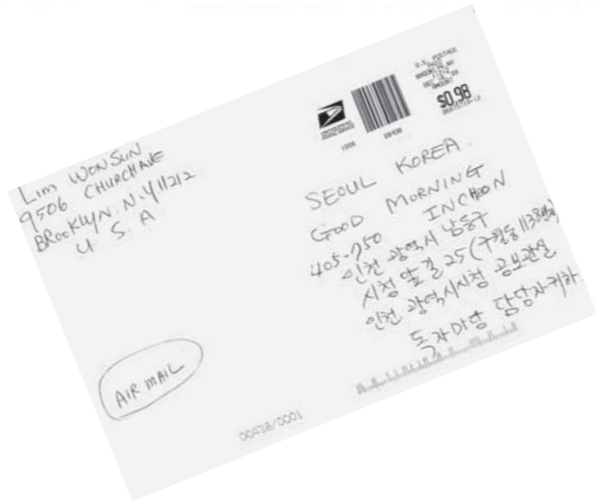 LIM WON SUN
9506 CHURCH AVE
BROOKLYN. N.Y 11212
U. S. A
$0.98
SEOUL KOREA.
GOOD MORNING
INCHON
405-750
인천 광역시 남동구
시청 앞길 25 (구월동 1138번지)
인천 광역시시청 공보관실
독자마당 담당자 귀하
AIR MAIL